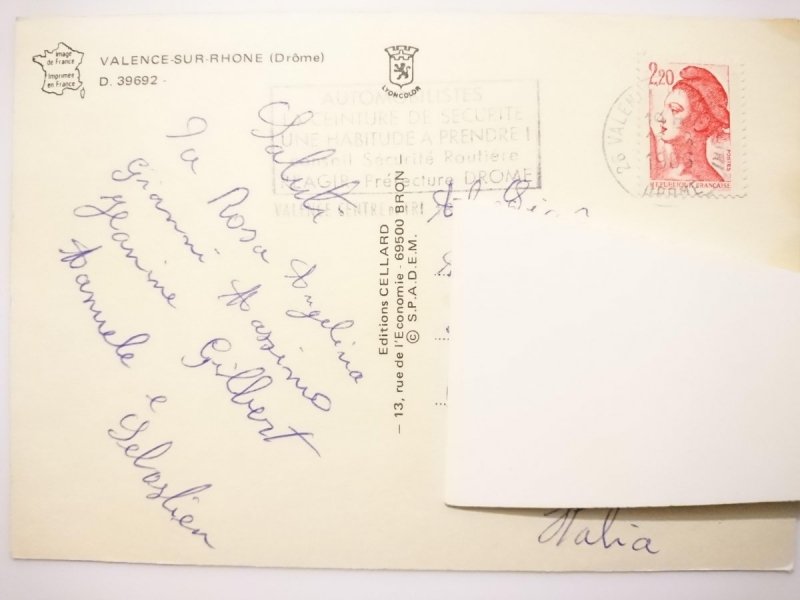 Image
de France
Imprimée
en France
VALENCE-SUR-RHONE (Drôme)
D. 39692 -
LYONCOLOR
AUTOMOBILISTES
LA CEINTURE DE SECURITE
UNE HABITUDE A PRENDRE !
Sécurité Routière
REAGIR Préfecture DROME
VALENCE CENTRE
26 VALENCE
2,20
POSTES
REPUBLIQUE FRANÇAISE
Saluti
Da Rosa Angelina
Gianni Massimo
Jeanine Gilbert
Manuele e
Sebastien
Editions CELLARD
— 13, rue de l'Economie - 69500 BRON
© S.P.A.D.E.M.
Italia